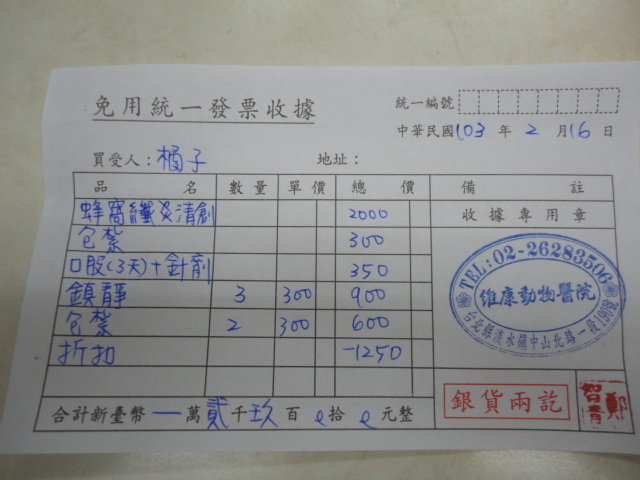 免用統一發票收據
統一編號
中華民國103年2月16日
買受人:橘子 地址:
品名 數量 單價 總價 備註
蜂窩纖及清創 2000
收據專用章
包紮 300
口服(3天)+針劑 350
鎮靜 3 300 900
包紮 2 300 600
折扣 -1250
TEL:02-26283506
維康動物醫院
台北縣淡水鎮中山北路一段190號
銀貨兩訖
鄭智青
合計新臺幣一萬貳千玖百0拾0元整